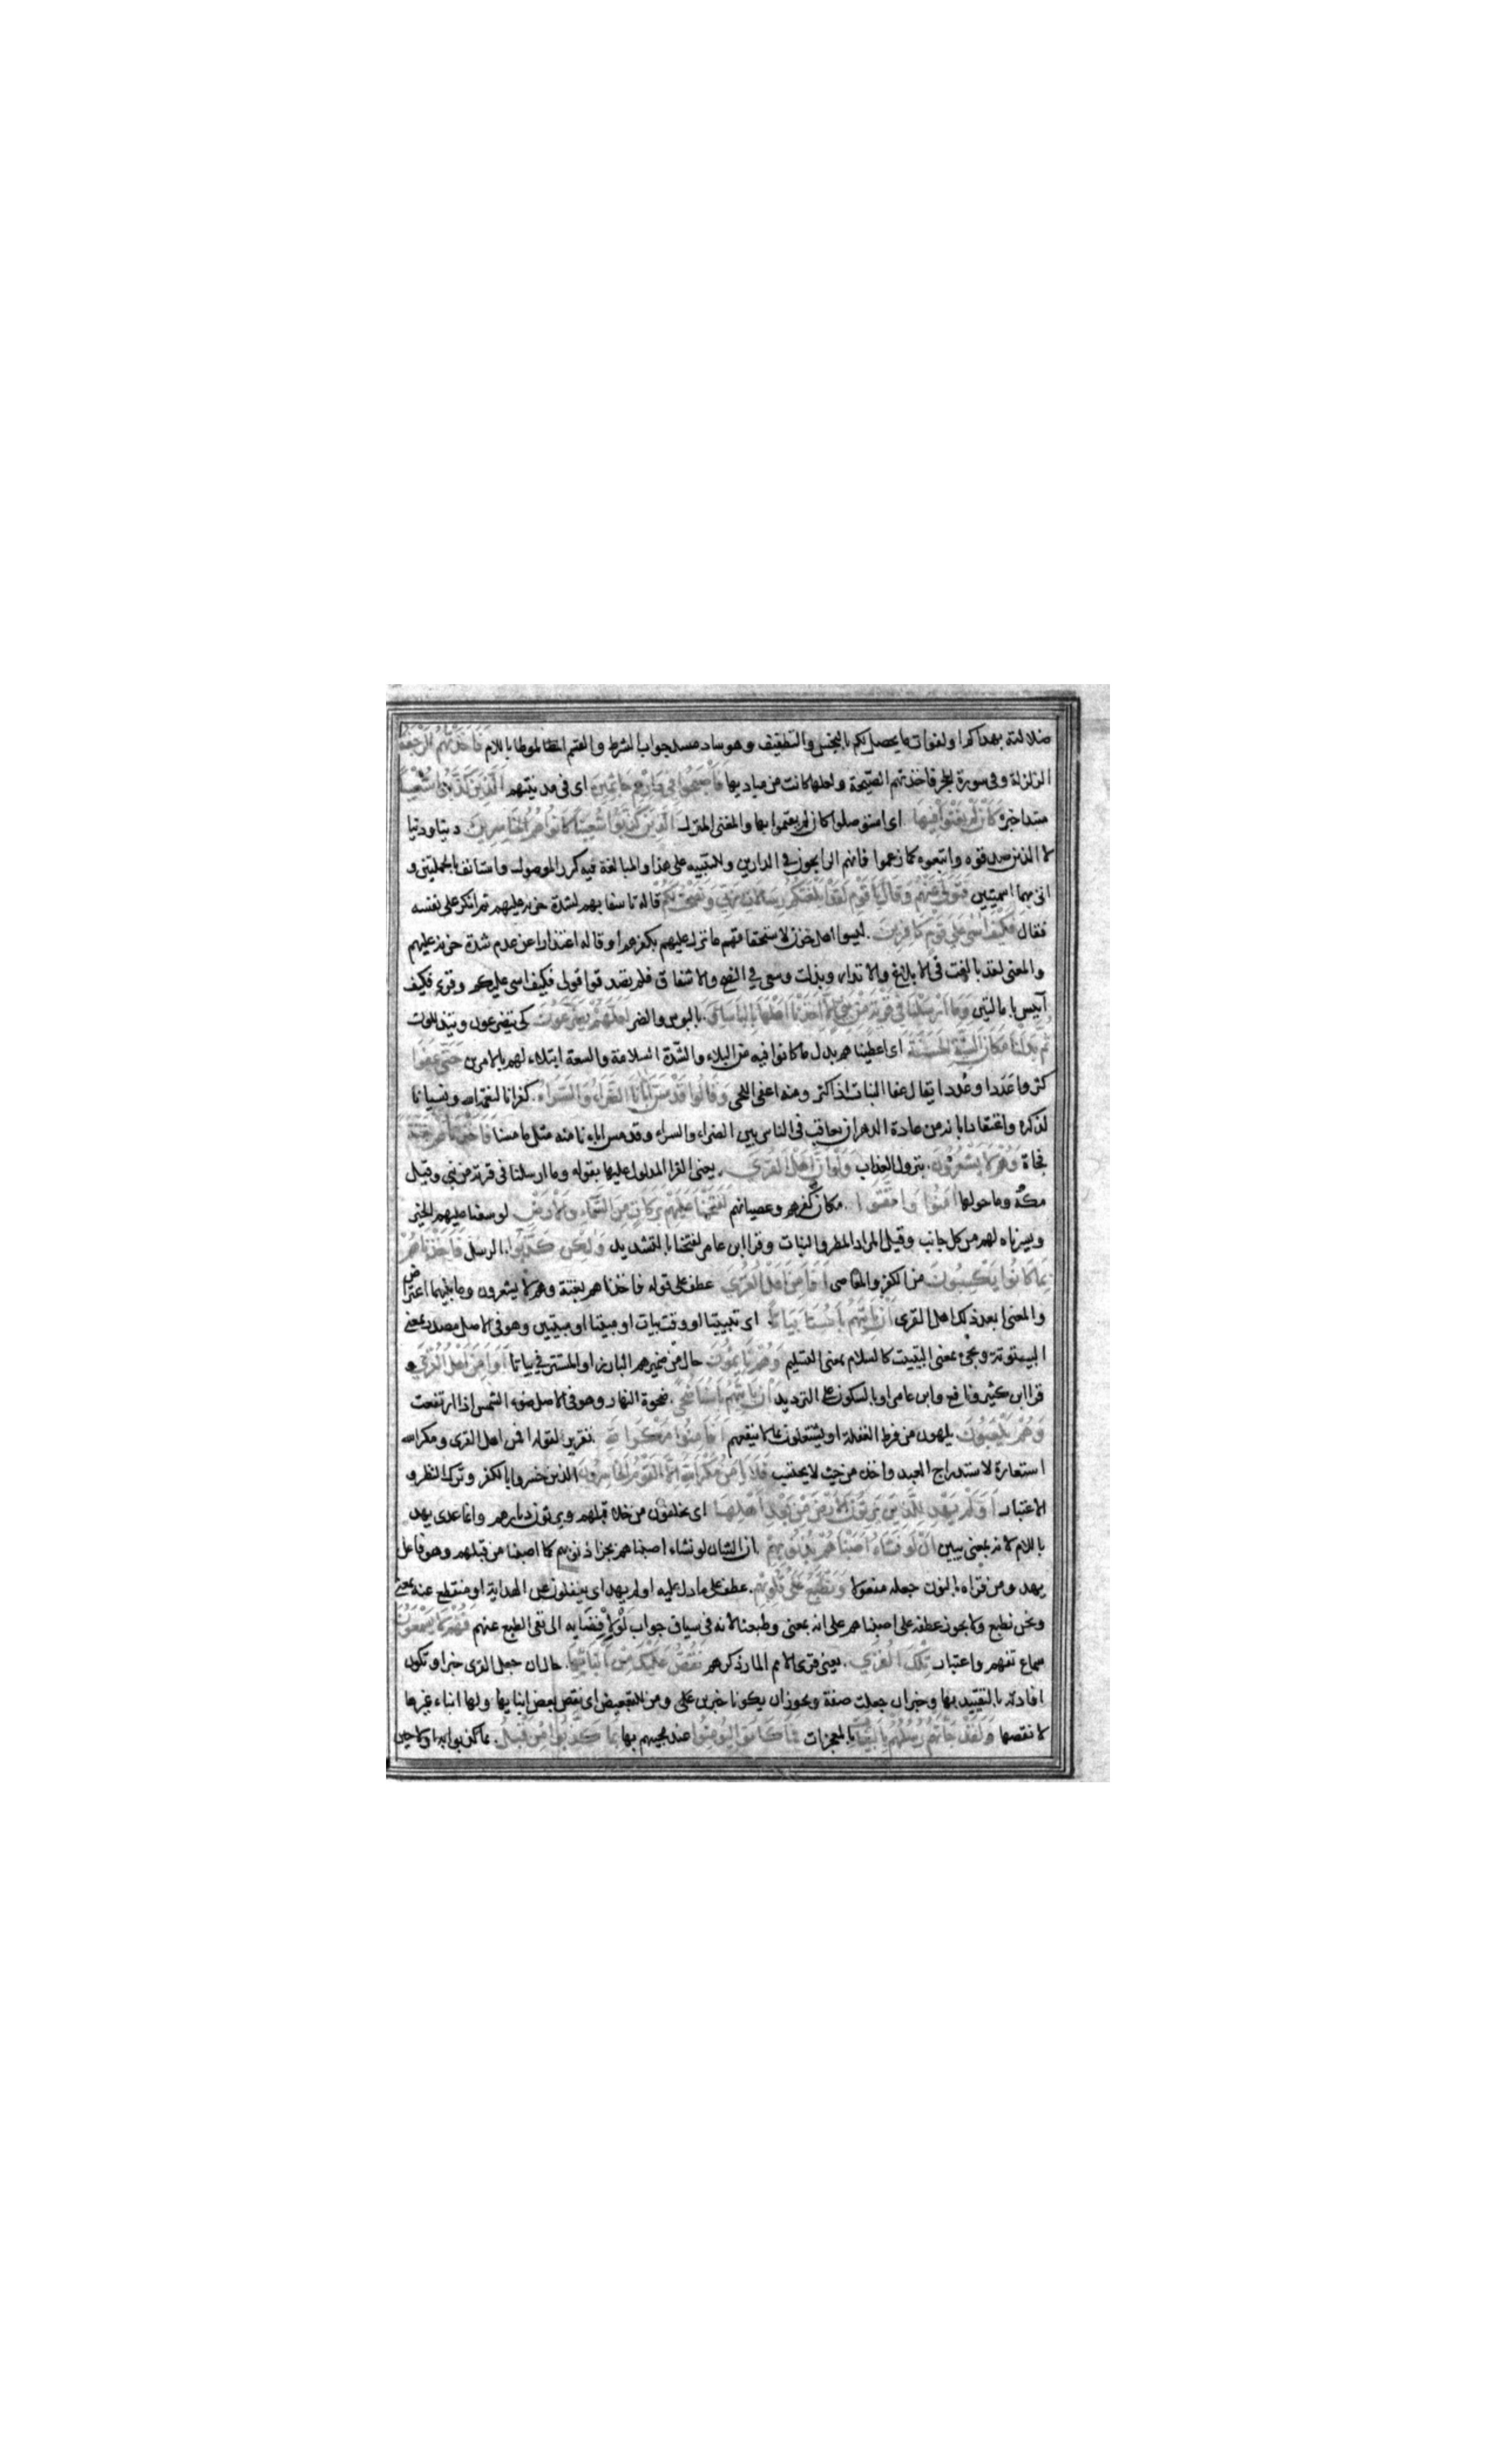 ضلالته بهداكم او لفوات ما يحصل لكم بالبخس والتطفيف وهو ساد مسد جواب الشرط والقسم الموطا باللام فَاَخَذَتْهُمُ الرَّجْفَةُ
الزلزلة وفى سورة الحجر فاخذتهم الصّيحة ولعلها كانت من مباديها فَاَصْبَحُوا فِي دَارِهِمْ جَاثِمِينَ اى فى مدينتهم اَلَّذِينَ كَذَّبُوا شُعَيْبًا
مبتدا خبره كَاَنْ لَمْ يَغْنَوْا فِيهَا اى استوصلوا كان لم يقيموا بها والمغنى المنزل اَلَّذِينَ كَذَّبُوا شُعَيْبًا كَانُوا هُمُ الْخَاسِرِينَ دينا ودنيا
لا الذين صدقوه واتبعوه كما زعموا فانهم الرابحون في الدارين وللتنبيه على هذا والمبالغة فيه كرر الموصول واستانف بالجملتين و
اتى بهما اسميتين فَتَوَلَّى عَنْهُمْ وَقَالَ يَا قَوْمِ لَقَدْ اَبْلَغْتُكُمْ رِسَالَاتِ رَبِّي وَنَصَحْتُ لَكُمْ قاله تاسفا بهم لشدة حزنه عليهم ثم انكر على نفسه
فقال فَكَيْفَ اٰسٰى عَلٰى قَوْمٍ كَافِرِينَ ليسوا اهل حزن لاستحقاقهم ما نزل عليهم بكفرهم او قاله اعتذارا عن عدم شدة حزنه عليهم
والمعنى لقد بالغت فى الابلاغ والانذار وبذلت وسعى في النصح والاشفاق فلم تصدقوا قولى فكيف اسى عليكم وقرئ فكيف
آيسى بامالتين وَمَا اَرْسَلْنَا فِي قَرْيَةٍ مِنْ نَبِيٍّ اِلَّا اَخَذْنَا اَهْلَهَا بِالْبَاْسَاءِ بالبوس والضر لَعَلَّهُمْ يَضَّرَّعُونَ كى يتضرعون ويتذللون
ثُمَّ بَدَّلْنَا مَكَانَ السَّيِّئَةِ الْحَسَنَةَ اى اعطيناهم بدل ما كانوا فيه من البلاء والشّدة السلامة والسعة ابتلاء لهم بالامرين حَتَّى عَفَوْا
كثروا عَددا وعُددا يقال عفا النبات اذا كثر ومنه اعفى اللحى وَقَالُوا قَدْ مَسَّ اٰبَاءَنَا الضَّرَّاءُ وَالسَّرَّاءُ كفرانا لنعمة الله ونسيانا
لذكره واعتقادا بانه من عادة الدهر ان يعاقب فى الناس بين الضراء والسراء وقد مس اباءنا منه مثل ما مسنا فَاَخَذْنَاهُمْ بَغْتَةً
فجاة وَهُمْ لَا يَشْعُرُونَ بنزول العذاب وَلَوْ اَنَّ اَهْلَ الْقُرٰى يعنى القرا المدلول عليها بقوله وما ارسلنا فى قرية من نبي وقيل
مكة وما حولها اٰمَنُوا وَاتَّقَوْا مكان كفرهم وعصيانهم لَفَتَحْنَا عَلَيْهِمْ بَرَكَاتٍ مِنَ السَّمَاءِ وَالْاَرْضِ لوسعنا عليهم الخير
ويسرناه لهم من كل جانب وقيل المراد المطر والنبات وقرا ابن عامر لفتحنا بالتشديد وَلٰكِنْ كَذَّبُوا الرسل فَاَخَذْنَاهُمْ
بِمَا كَانُوا يَكْسِبُونَ من الكفر والمعاصى اَفَاَمِنَ اَهْلُ الْقُرٰى عطف على قوله فاخذناهم بغتة وهم لا يشعرون وما بينهما اعتراض
والمعنى ابعد ذلك امن اهل القرى اَنْ يَاْتِيَهُمْ بَاْسُنَا بَيَاتًا اى تبييتا او وقت بيات او مبيتا او مبيتين وهو فى الاصل مصدر بمعنى
البيتوتة ويجىء بمعنى التبييت كالسلام بمعنى التسليم وَهُمْ نَائِمُونَ حال من ضميرهم البارز او المستتر في بياتا اَوَاَمِنَ اَهْلُ الْقُرٰى و
قرا ابن كثير ونافع وابن عامر او بالسكون على الترديد اَنْ يَاْتِيَهُمْ بَاْسُنَا ضُحًى ضحوة النهار وهو فى الاصل ضوء الشمس اذا ارتفعت
وَهُمْ يَلْعَبُونَ يلهون من فرط الغفلة او يشتغلون بما لا ينفعهم اَفَاَمِنُوا مَكْرَ اللّٰهِ تقرير لقوله افامن اهل القرى ومكر الله
استعارة لاستدراج العبد واخذه من حيث لا يحتسب فَلَا يَاْمَنُ مَكْرَ اللّٰهِ اِلَّا الْقَوْمُ الْخَاسِرُونَ الذين خسروا بالكفر وترك النظر و
الاعتبار اَوَلَمْ يَهْدِ لِلَّذِينَ يَرِثُونَ الْاَرْضَ مِنْ بَعْدِ اَهْلِهَا اى يخلفون من خلا قبلهم ويرثون ديارهم وانما عدى يهد
باللام لانه بمعنى يبين اَنْ لَوْ نَشَاءُ اَصَبْنَاهُمْ بِذُنُوبِهِمْ ان الشان لو نشاء اصبناهم بجزاء ذنوبهم كما اصبنا من قبلهم وهو فاعل
يهد ومن قراه بالنون جعله مفعولا وَنَطْبَعُ عَلٰى قُلُوبِهِمْ عطف على ما دل عليه اولم يهد اى يغفلون عن الهداية او منقطع عنه بمعنى
ونحن نطبع ولا يجوز عطفه على اصبناهم على انه بمعنى وطبعنا لانه فى سياق جواب لو لافضايه الى نفى الطبع عنهم فَهُمْ لَا يَسْمَعُونَ
سماع تفهم واعتبار تِلْكَ الْقُرٰى يعنى قرى الامم المار ذكرهم نَقُصُّ عَلَيْكَ مِنْ اَنْبَائِهَا حال ان جعل القرى خبرا وتكون
افادته بالتقييد بها وخبر ان جعلت صفة ويجوز ان يكونا خبرين على ومن للتبعيض اى نقص بعض انبايها ولها انباء غيرها
لا نقصها وَلَقَدْ جَاءَتْهُمْ رُسُلُهُمْ بِالْبَيِّنَاتِ بالمعجزات فَمَا كَانُوا لِيُؤْمِنُوا عند مجيئهم بها بِمَا كَذَّبُوا مِنْ قَبْلُ بما كذبوا به